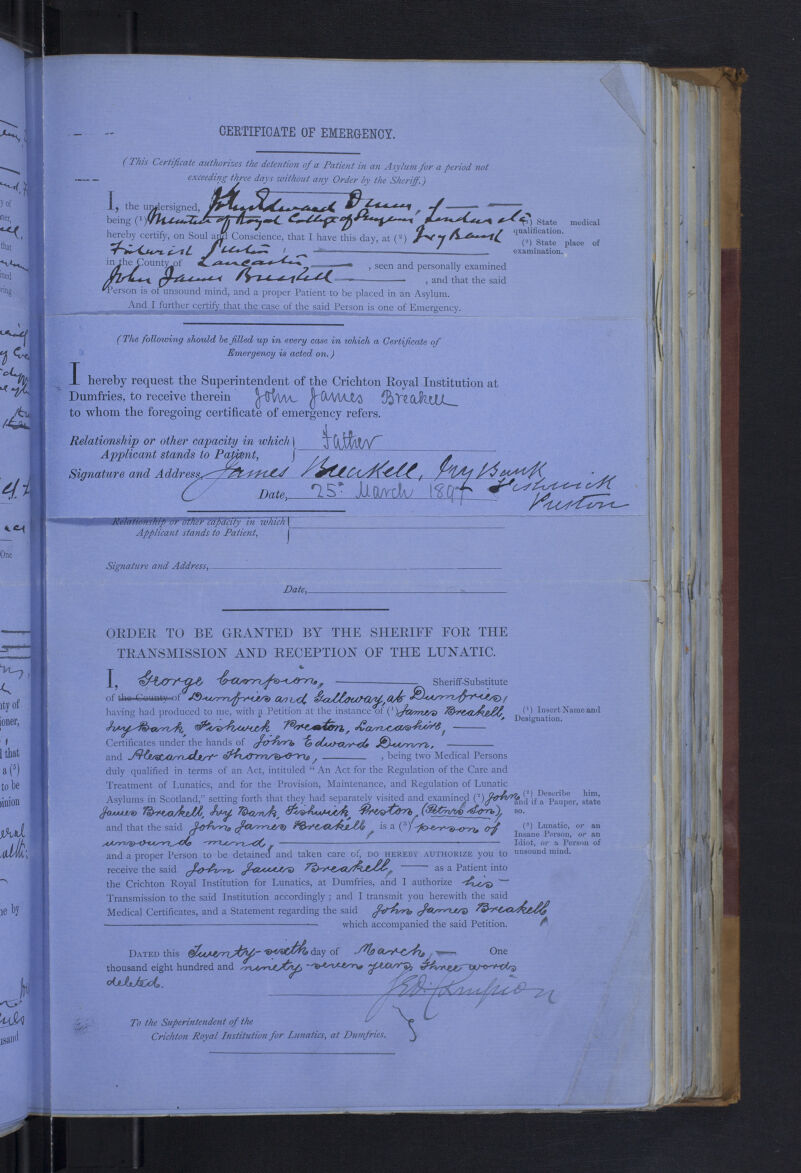 CERTIFICATE OF EMERGENCY.
(This Certificate authorizes the detention of a Patient in an Asylum for a period not
exceeding three days without any Order by the Sheriff.)
I, the undersigned, John Edward Dunn, of
being (¹) Member of Royal College of Surgeons London &c
(¹) State medical
qualification.
hereby certify, on Soul and Conscience, that I have this day, at (²) Ivy Bank
(²) State place of
examination.
Fishwick Preston
in the County of Lancaster, seen and personally examined
John James Breakell, and that the said
Person is of unsound mind, and a proper Patient to be placed in an Asylum.
And I further certify that the case of the said Person is one of Emergency.
(The following should be filled up in every case in which a Certificate of
Emergency is acted on.)
I hereby request the Superintendent of the Crichton Royal Institution at
Dumfries, to receive therein John James Breakell
to whom the foregoing certificate of emergency refers.
Relationship or other capacity in which
Applicant stands to Patient, Father
Signature and Address, James Breakell, Ivy Bank
Fishwick
Date, 25th March 1897
Preston
Relationship or other capacity in which
Applicant stands to Patient,
Signature and Address,
Date,
ORDER TO BE GRANTED BY THE SHERIFF FOR THE
TRANSMISSION AND RECEPTION OF THE LUNATIC.
I, George Campion, Sheriff-Substitute
of the County of Dumfries and Galloway, at Dumfries,
having had produced to me, with a Petition at the instance of (¹) James Breakell,
(¹) Insert Name and
Designation.
Ivy Bank, Fishwick Preston, Lancashire,
Certificates under the hands of John Edward Dunn,
and Alexander Thomson, being two Medical Persons
duly qualified in terms of an Act, intituled "An Act for the Regulation of the Care and
Treatment of Lunatics, and for the Provision, Maintenance, and Regulation of Lunatic
Asylums in Scotland," setting forth that they had separately visited and examined (²) John
(²) Describe him,
and if a Pauper, state
so.
James Breakell, Ivy Bank, Fishwick, Preston, (Petnrs Son),
and that the said John James Breakell, is a (³) person of
(³) Lunatic, or an
Insane Person, or an
Idiot, or a Person of
unsound mind.
unsound mind,
and a proper Person to be detained and taken care of, DO HEREBY AUTHORIZE you to
receive the said John James Breakell, as a Patient into
the Crichton Royal Institution for Lunatics, at Dumfries, and I authorize his
Transmission to the said Institution accordingly; and I transmit you herewith the said
Medical Certificates, and a Statement regarding the said John James Breakell
which accompanied the said Petition.
DATED this Twenty-sixth day of March, One
thousand eight hundred and ninety-seven years, Three words
deleted.
Geo. Campion
To the Superintendent of the
Crichton Royal Institution for Lunatics, at Dumfries.